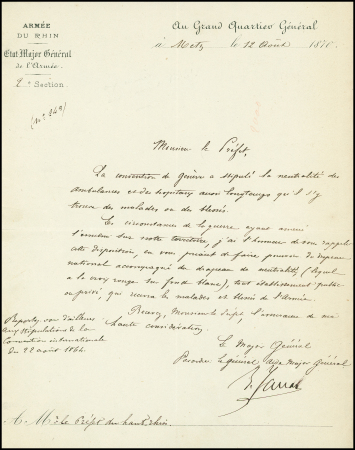 ARMÉE
DU RHIN
Etat Major Général
de l'Armée
2e Section
(No 243)
Au Grand Quartier Général
à Metz le 12 Août 1870
Monsieur le Préfet,
La convention de Genève a stipulé la neutralité des
ambulances et des hôpitaux aussi longtemps qu'il s'y
trouve des malades ou des blessés.
Les circonstances de la guerre ayant amené
l'ennemi sur notre territoire, j'ai l'honneur de vous rappeler
cette disposition, en vous priant de faire pourvoir du drapeau
national accompagné du drapeau de neutralité (
à la croix rouge sur fond blanc), tout établissement public
ou privé, qui recevra les malades et blessés de l'Armée.
Recevez, Monsieur le Préfet, l'assurance de ma
haute considération.
Reportez vous d'ailleurs
aux stipulations de la
Convention internationale
du 22 août 1864.
Le Major Général
Par ordre Le général aide Major Général
Jarras
A Mr le Préfet du haut Rhin.